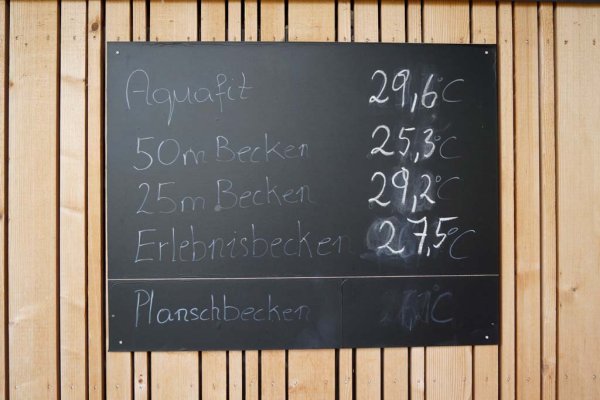 Aquafit 29,6°C
50m Becken 25,3°C
25m Becken 29,2°C
Erlebnisbecken 27,5°C
Planschbecken °C